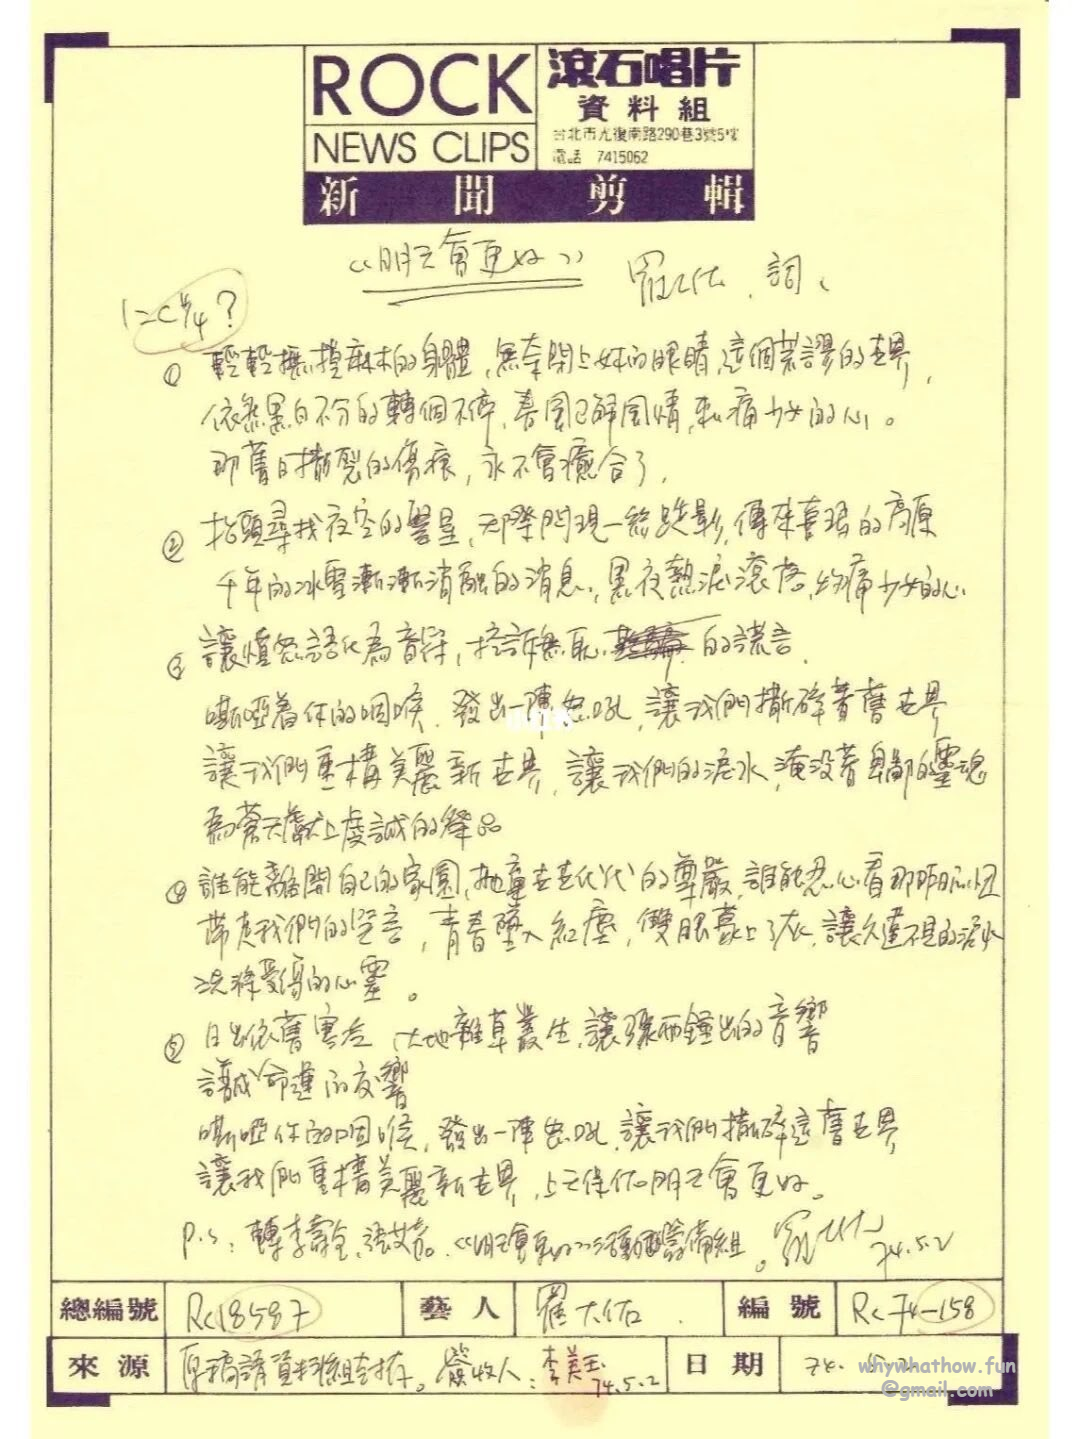 ROCK
NEWS CLIPS
滾石唱片
資料組
台北市光復南路290巷3號5樓
電話 7415062
新聞剪輯
《明天會更好》
羅大佑、詞、
1=C 4/4?
① 輕輕撫摸麻木的身體，無奈閉上妳的眼睛，這個荒謬的世界，
依然黑白不分的轉個不停，春風已解風情，刺痛少女的心。
那舊日撕裂的傷痕，永不會癒合了，
② 抬頭尋找夜空的繁星，天際閃現一絲蹤影，傳來喜瑪的高原
千年的冰雪漸漸消融的消息，黑夜熱淚滾落，灼痛少女的心
③ 讓憤怒語化為音符，控訴無恥的謊言，
嘶啞著你的咽喉，發出一陣怒吼，讓我們撕碎著舊世界
讓我們重構美麗新世界，讓我們的淚水，淹没著卑鄙的靈魂
為蒼天獻上虔誠的祭品
④ 誰能離開自己的家園，拋棄世世代代的尊嚴，誰能忍心看那昨日
帶走我們的，青春墜入紅塵，雙眼蒙上了灰，讓久違不見的淚水
洗滌受傷的心靈。
⑤ 日出依舊寒冷，大地雜草叢生，讓錘出的音響
譜成命運的交響
嘶啞你的咽喉，發出一陣怒吼，讓我們撕碎這舊世界，
讓我們重構美麗新世界，上天保佑明天會更好。
P.S：轉李壽全，張艾嘉。《明天會更好》籌備組。羅大佑 74.5.2
總編號 Rc18587 藝人 羅大佑 編號 Rc74-158
來源 原稿請資料組封存。簽收人：李美玉 74.5.2 日期 74.
whywhathow.fun
@gmail.com